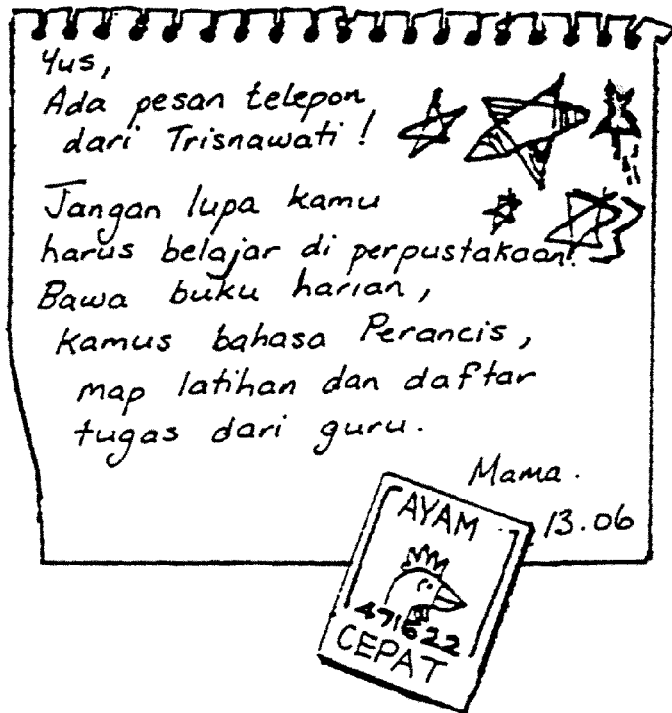 Yus,
Ada pesan telepon
dari Trisnawati!
Jangan lupa kamu
harus belajar di perpustakaan!
Bawa buku harian,
kamus bahasa Perancis,
map latihan dan daftar
tugas dari guru.
Mama.
13.06
AYAM
471622
CEPAT